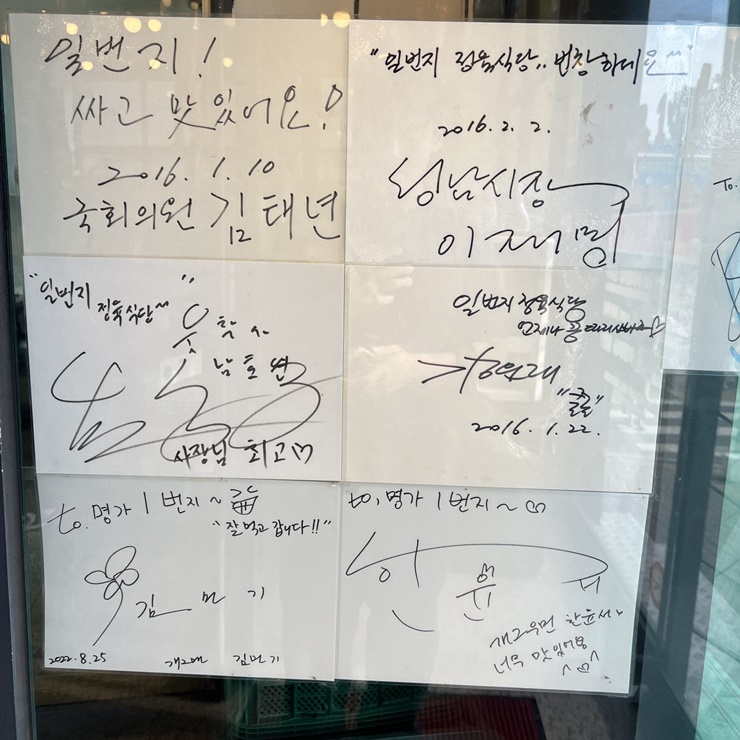 일번지!
싸고 맛있어요!
2016. 1. 10
국회의원 김태년
"일번지 정육식당.. 번창하데요~"
2016. 2. 2.
성남시장
이재명
"일번지
정육식당~"
웃찾사
남호연
사장님 최고
일번지 정육식당
언제나
"클론"
2016. 1. 22.
to. 명가 1번지~
"잘 먹고 갑니다!!"
김민기
2022. 8. 25 개그맨 김민기
to. 명가 1번지~
한윤서
개그우먼 한윤서
너무 맛있어용
To.